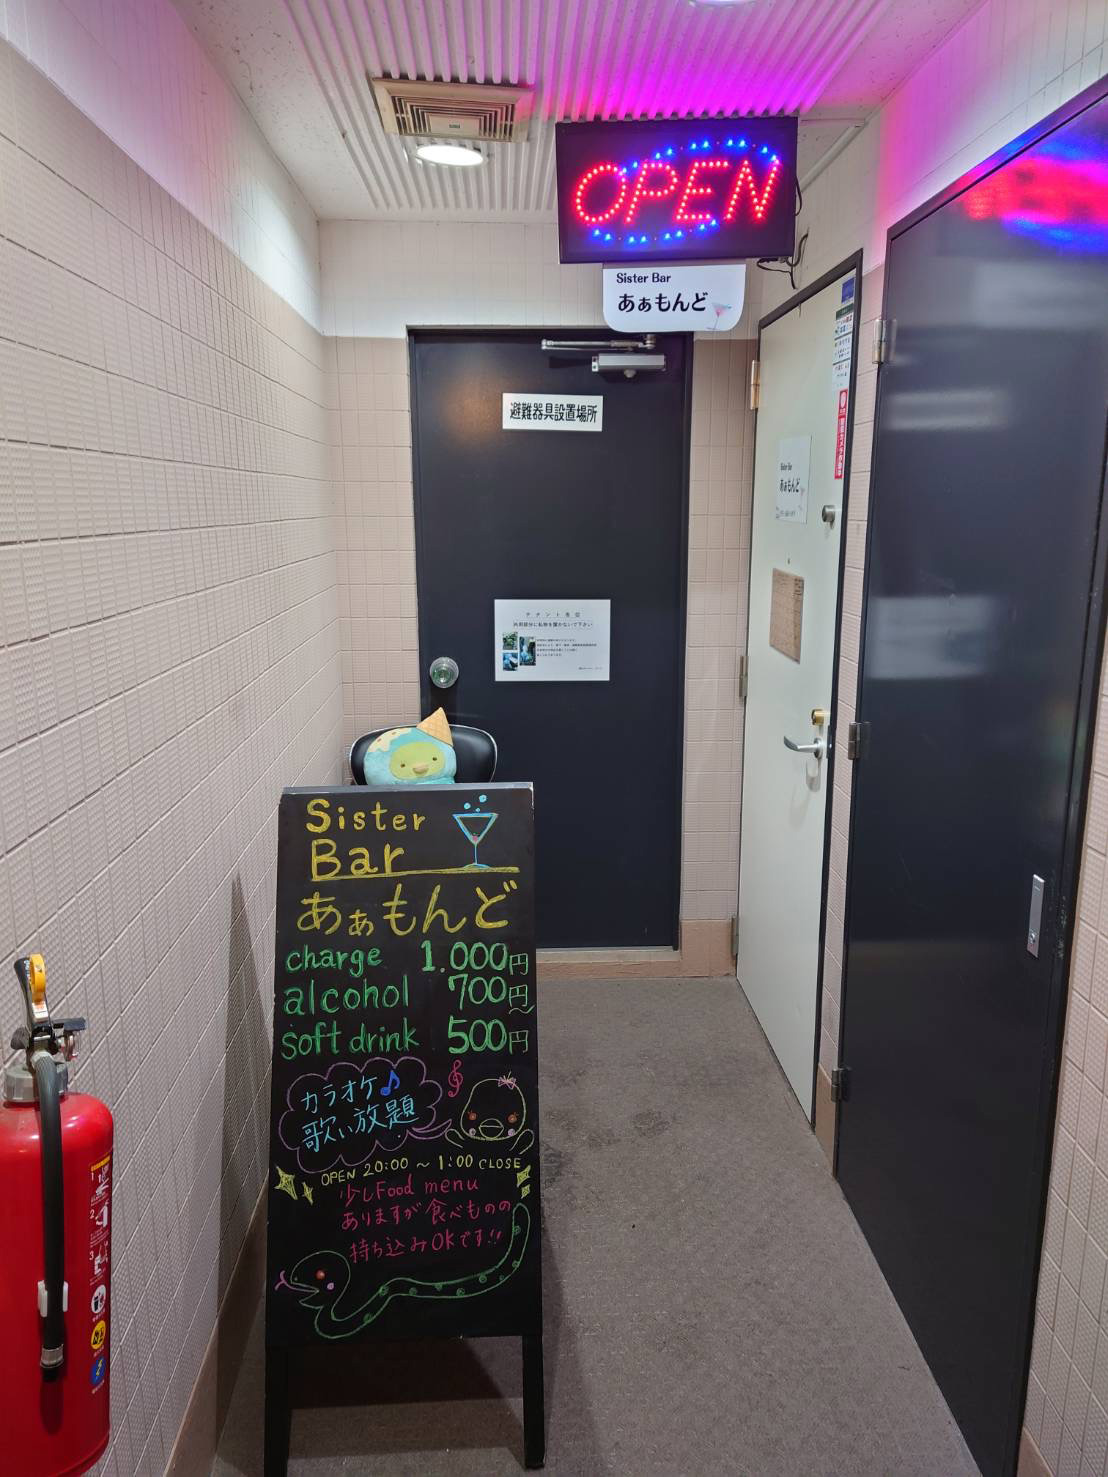 OPEN
Sister Bar
あぁもんど
避難器具設置場所
Sister Bar
あぁもんど
テナント各位
共用部分に私物を置かないで下さい
Sister
Bar
あぁもんど
charge 1.000円
alcohol 700円〜
soft drink 500円
カラオケ♪
歌い放題
OPEN 20:00 〜 1:00 CLOSE
少しFood menu
ありますが食べものの
持ち込みOKです!!
1
2
3